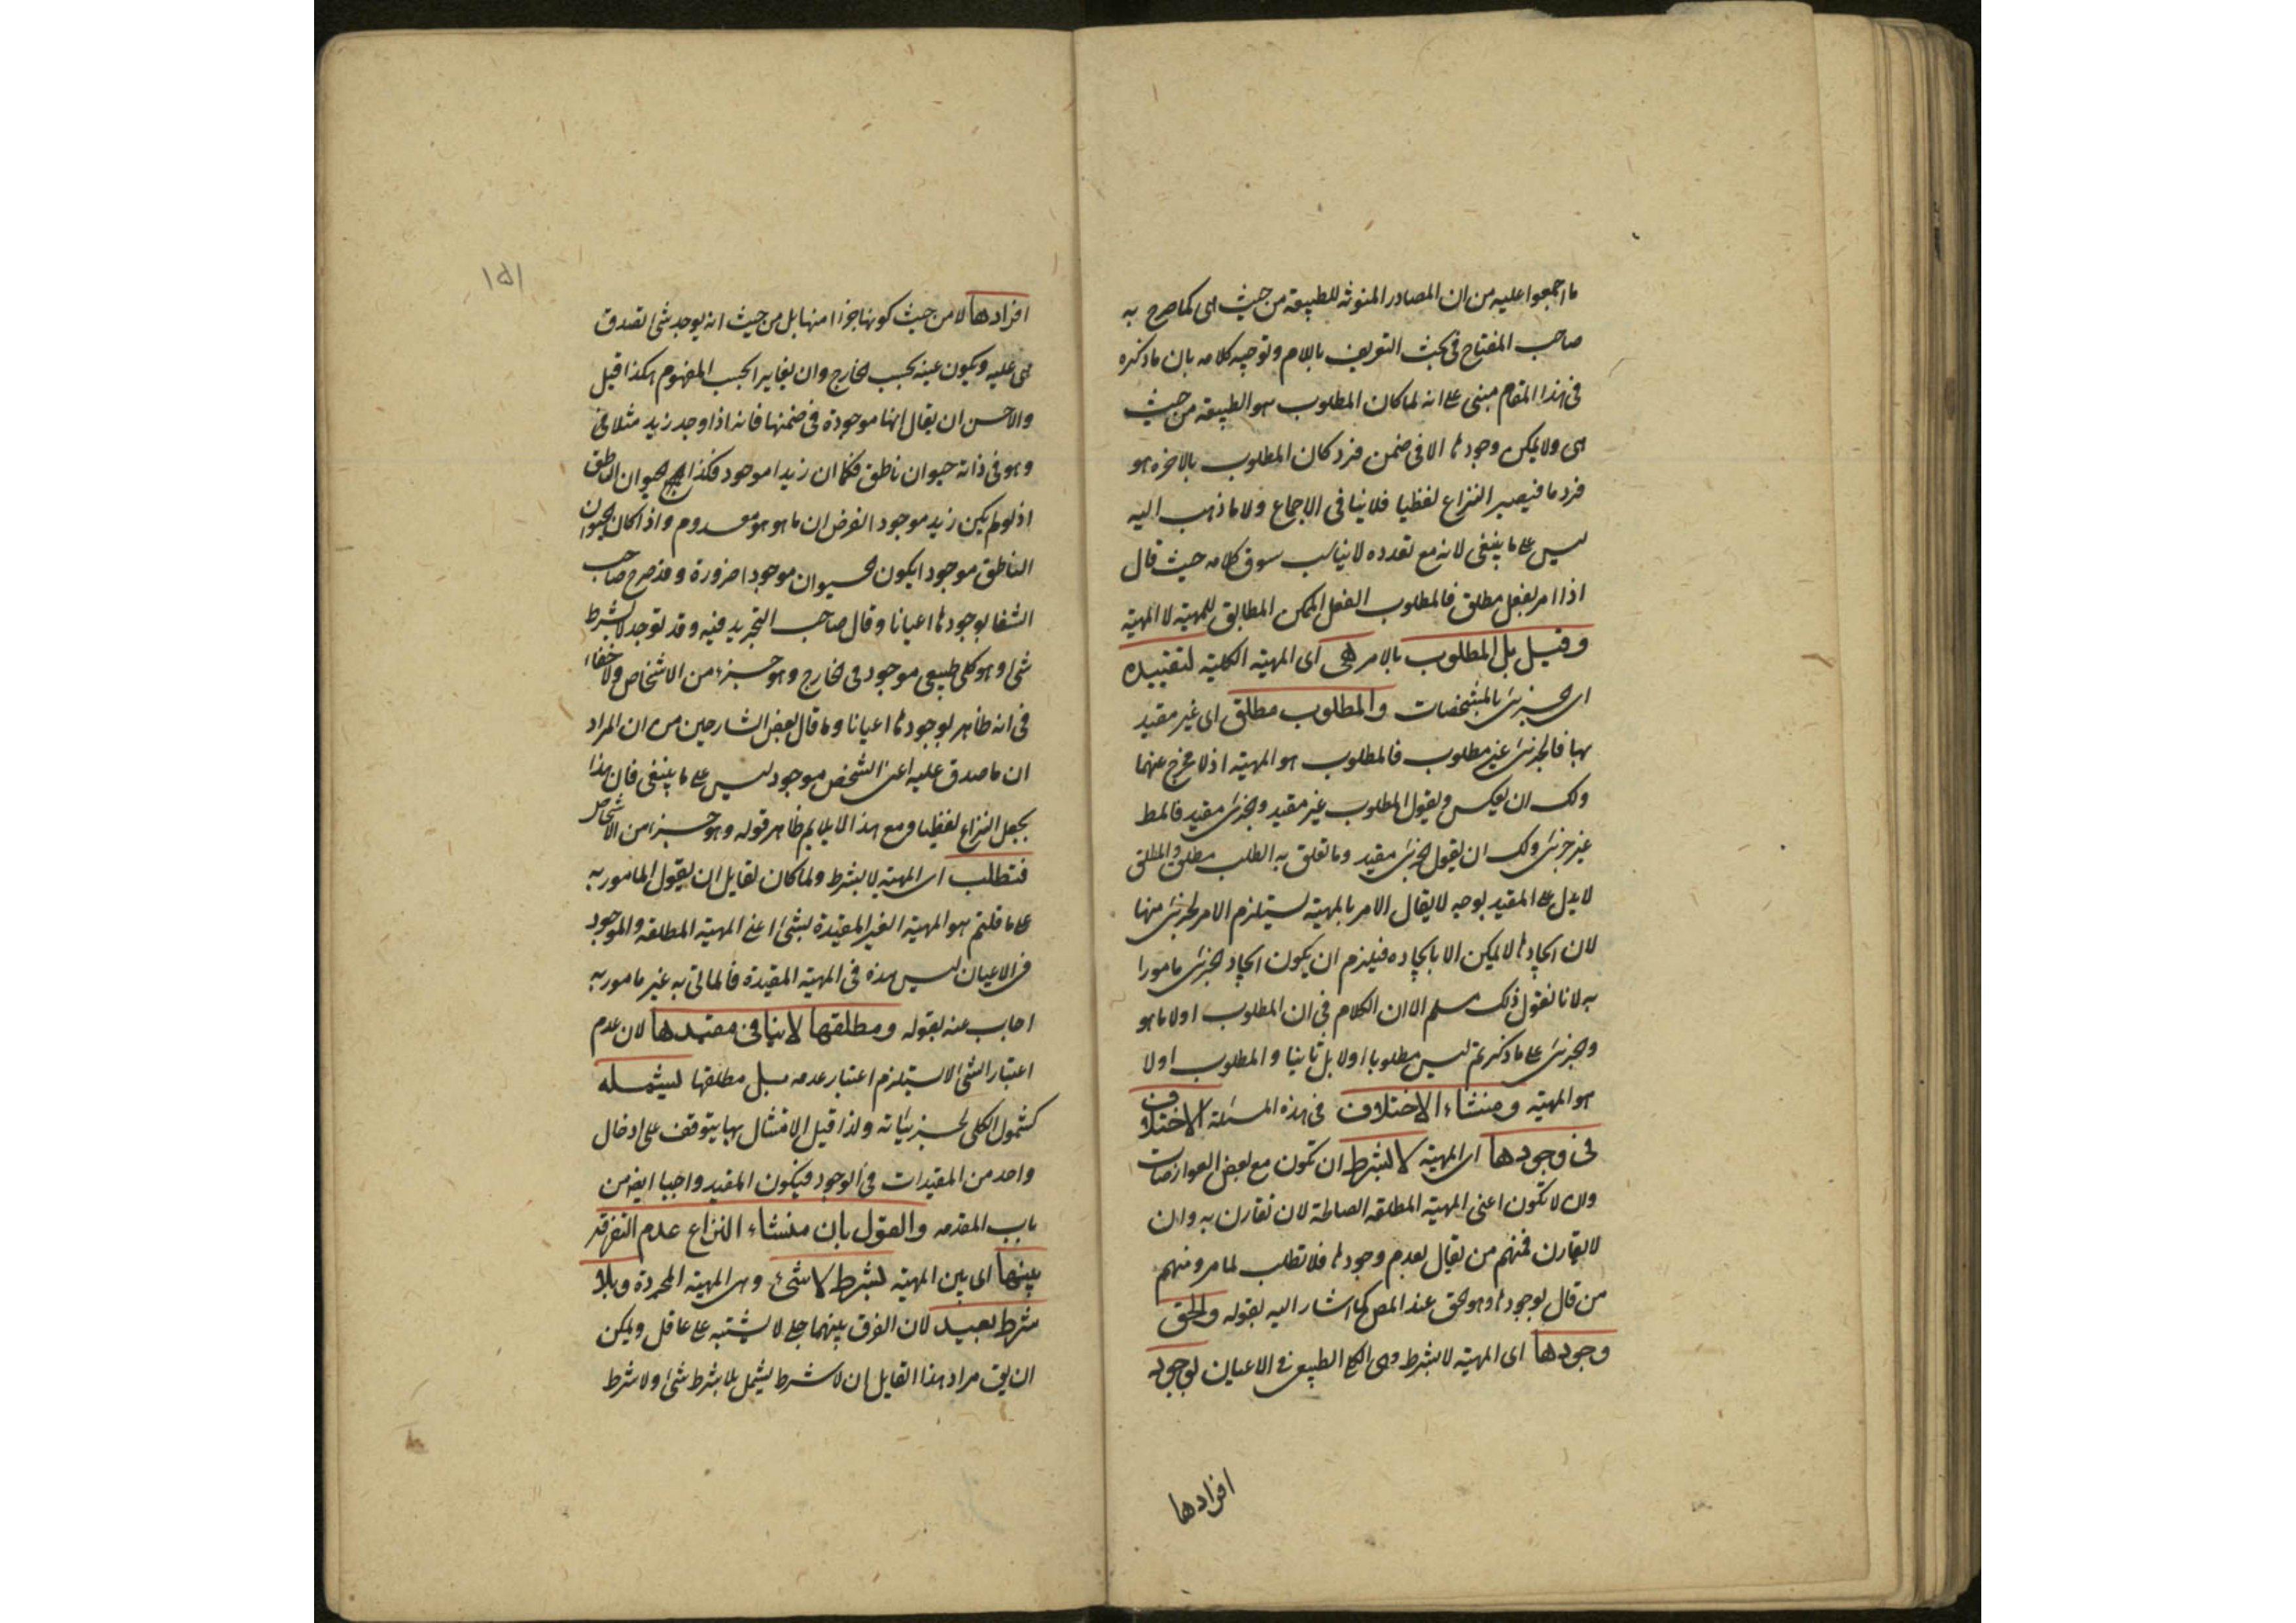 ما اجمعوا عليه من ان المصادر المنونة للطبيعة من حيث هى كما صرح به
صاحب المفتاح فى بحث التعريف باللام وتوجيه كلامه بان ما ذكره
فى هذا المقام مبنى على انه لما كان المطلوب هو الطبيعة من حيث
هى ولا يمكن وجودها الا فى ضمن فرد كان المطلوب بالاخره هو
فرد ما فيصير النزاع لفظيا فلا ينافى الاجماع ولا ما ذهب اليه
ليس على ما ينبغى لانه مع تعدده لا يناسب سوق كلامه حيث قال
اذا امر بفعل مطلق فالمطلوب الفعل الممكن المطابق للمهية لا المهية
وقيل بل المطلوب بالامر هى اى المهية الكلية لتقييده
اى الجزئى بالمشخصات والمطلوب مطلق اى غير مقيد
بها فالجزئى غير مطلوب فالمطلوب هو المهية اذ لا مخرج عنهما
ولك ان يعكس ويقول المطلوب غير مقيد والجزئى مقيد فالمط
غير جزئى ولك ان يقول الجزئى مقيد وما تعلق به الطلب مطلق والمطلق
لا يدل على المقيد بوجه لا يقال الامر بالمهية يستلزم الامر بجزئى منها
لان ايجادها لا يمكن الا بايجاده فيلزم ان يكون ايجاد الجزئى مامورا
به لانا نقول ذلك مسلم الا ان الكلام فى ان المطلوب اولا ما هو
والجزئى على ما ذكرتم ليس مطلوبا اولا بل ثانيا والمطلوب اولا
هو المهية ومنشاء الاختلاف فى هذه المسئلة الاختلاف
فى وجودها اى المهية لا بشرط ان تكون مع بعض العوارضات
وان لا تكون اعنى المهية المطلقه الصالحة لان تقارن به وان
لا يقارن فمنهم من يقال بعدم وجودها فلا تطلب لما مر ومنهم
من قال بوجودها وهو الحق عند المص كما اشار اليه بقوله والحق
وجودها اى المهية لا بشرط وهى الكلى الطبيعى فى الاعيان لوجود
افرادها
١٥١
افرادها لا من حيث كونها جزءا منها بل من حيث انه يوجد شئ تصدق
هى عليه ويكون عينه بحسب الخارج وان يغاير بحسب المفهوم هكذا قيل
والاحسن ان يقال انها موجودة فى ضمنها فانه اذا وجد زيد مثلا فى
وهو فى ذاته حيوان ناطق فكما ان زيدا موجود فكذا الحيوان الناطق
اذ لو لم يكن زيد موجود الفرض ان ما هو هو معدوم واذا كان الحيوان
الناطق موجودا يكون الحيوان موجودا ضرورة وقد صرح صاحب
الشفا بوجودها اعيانا وقال صاحب التجريد فيه وقد توجد لا بشرط
شئ وهو كلى طبيعى موجود فى الخارج وهو جزء من الاشخاص ولا خفاء
فى انه ظاهر لوجودها اعيانا وما قال بعض الشارحين من ان المراد
ان ما صدق عليه اعنى الشخص موجود ليس على ما ينبغى فان هذا
يجعل النزاع لفظيا ومع هذا لا يلايم ظاهر قوله وهو جزء من الاشخاص
فتطلب اى المهية لا بشرط ولما كان لقايل ان يقول المامور به
على ما قلتم هو المهية الغير المقيدة بشئ اعنى المهية المطلقة والموجود
فى الاعيان ليس هذه فى المهية المقيدة فالماتى به غير مامور به
اجاب عنه بقوله ومطلقها لا ينافى مقيدها لان عدم
اعتبار الشئ لا يستلزم اعتبار عدمه بل مطلقها ليشمله
كشمول الكلى لجزئياته ولذا قيل الامتثال بها يتوقف على ادخال
واحد من المقيدات فى الوجود فيكون المقيد واجبا ايضا من
باب المقدمه والقول بان منشاء النزاع عدم التفرقة
بينها اى بين المهية بشرط لا شئ وهى المهية المجردة وبلا
شرط بعيد لان الفرق بينهما جلى لا يشتبه على عاقل ويمكن
ان يق مراد هذا القايل ان لا شرط يشمل بلا شرط شئ ولا شرط